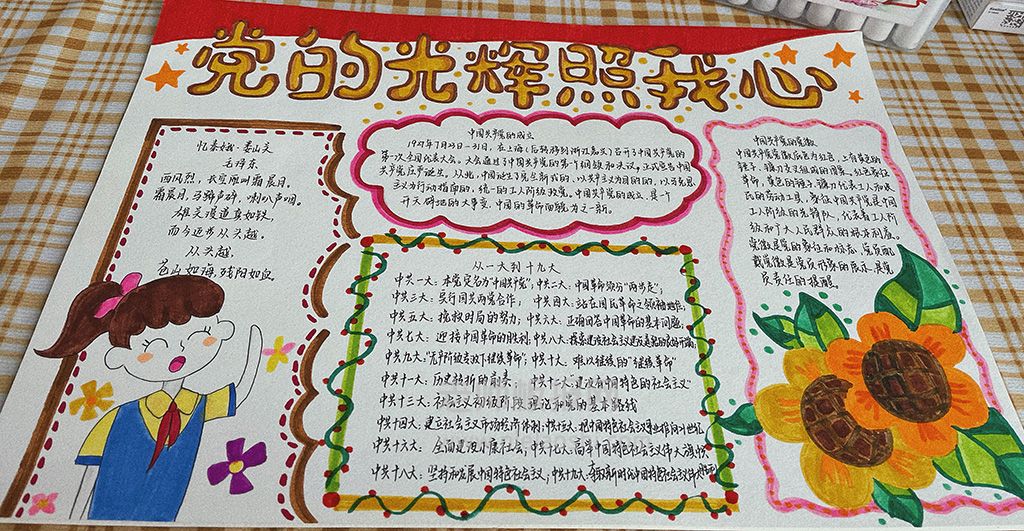 党的光辉照我心
忆秦娥·娄山关
毛泽东
西风烈，长空雁叫霜晨月。
霜晨月，马蹄声碎，喇叭声咽。
雄关漫道真如铁，
而今迈步从头越。
从头越，
苍山如海，残阳如血。
中国共产党的成立
1921年7月23日-31日，在上海（后转移到浙江嘉兴）召开了中国共产党的
第一次全国代表大会。大会通过了中国共产党的第一个纲领和决议，正式宣告中国
共产党庄严诞生。从此，中国诞生了完全新式的，以共产主义为目的的，以马克思
主义为行动指南的，统一的工人阶级政党。中国共产党的成立，是一个
开天辟地的大事变，中国的革命面貌为之一新。
从一大到十九大
中共一大：本党定名为"中国共产党"；中共二大：中国革命须分"两步走"；
中共三大：实行国共两党合作； 中共四大：站在国民革命之领袖地位；
中共五大：挽救时局的努力；中共六大：正确回答中国革命的基本问题；
中共七大： 迎接中国革命的胜利；中共八大：探索建设社会主义建设
中共九大："无产阶级专政下继续革命"；中共十大：难以继续的"继续革命"
中共十一大：历史转折的前奏 中共十二大："建设有中国特色的社会主义"
中共十三大：社会主义初级阶段理论和党的基本路线
中共十四大：建立社会主义市场经济体制；中共十五大：把中国特色社会主义事业推向21世纪
中共十六大： 全面建设小康社会；中共十七大：高举中国特色社会主义伟大旗帜
中共十八大：坚持和发展中国特色社会主义；中共十九大：新时代中国特色社会主义
中国共产党的党徽
中国共产党党徽底色为红色，上有黄色的
锤子、镰刀交叉组成的图案。红色象征
革命，黄色的锤子、镰刀代表工人和农
民的劳动工具，象征中国共产党是中国
工人阶级的先锋队，代表着工人阶
级和广大人民群众的根本利益。
党徽是党的象征和标志，党员佩
戴党徽是党员形象的展示，是党
员责任的提醒。